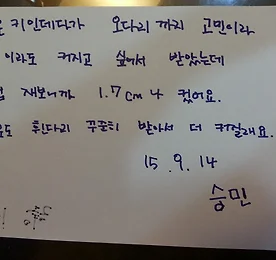 키인데다가 오다리까지 고민이라
이라도 커지고 싶어서 받았는데
재보니까 1.7cm나 컸어요.
휜다리 꾸준히 받아서 더 커질래요.
15.9.14
승민